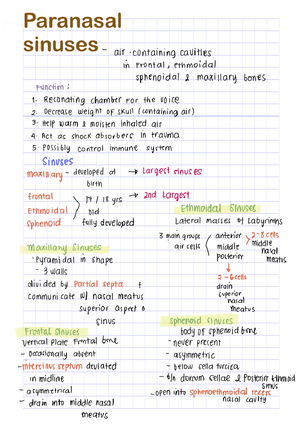 Paranasal
sinuses - air-containing cavities
in frontal, ethmoidal
sphenoidal & maxillary bones
Function:
1. Resonating chamber for the voice
2. Decrease weight of skull (containing air)
3. Help warm & moisten inhaled air
4. Act as shock absorbers in trauma
5. Possibly control immune system
Sinuses
maxillary - developed at birth → largest sinuses
frontal
Ethmoidal
sphenoid
17 / 18 yrs old
fully developed
→ 2nd Largest
Maxillary Sinuses
- Pyramidal in shape
- 3 walls
divided by Partial septa
communicate w/ nasal meatus
superior aspect o
sinus
Ethmoidal Sinuses
Lateral masses of Labyrinths
3 main groups
air cells
anterior
middle
Posterior
→ 2-8 cells
middle
nasal
meatus
↓
2-6 cells
drain
superior
nasal
meatus
Frontal Sinuses
Vertical plate frontal bone
- Occasionally absent
- intersinus septum deviated
in midline
- asymmetrical
- drain into middle nasal
meatus
sphenoid sinuses
body of sphenoid bone
- never present
- asymmetric
- below sella turcica
- b/n dorsum sellae & Posterior ethmoid
sinus
- open into sphenoethmoidal recess
nasal cavity